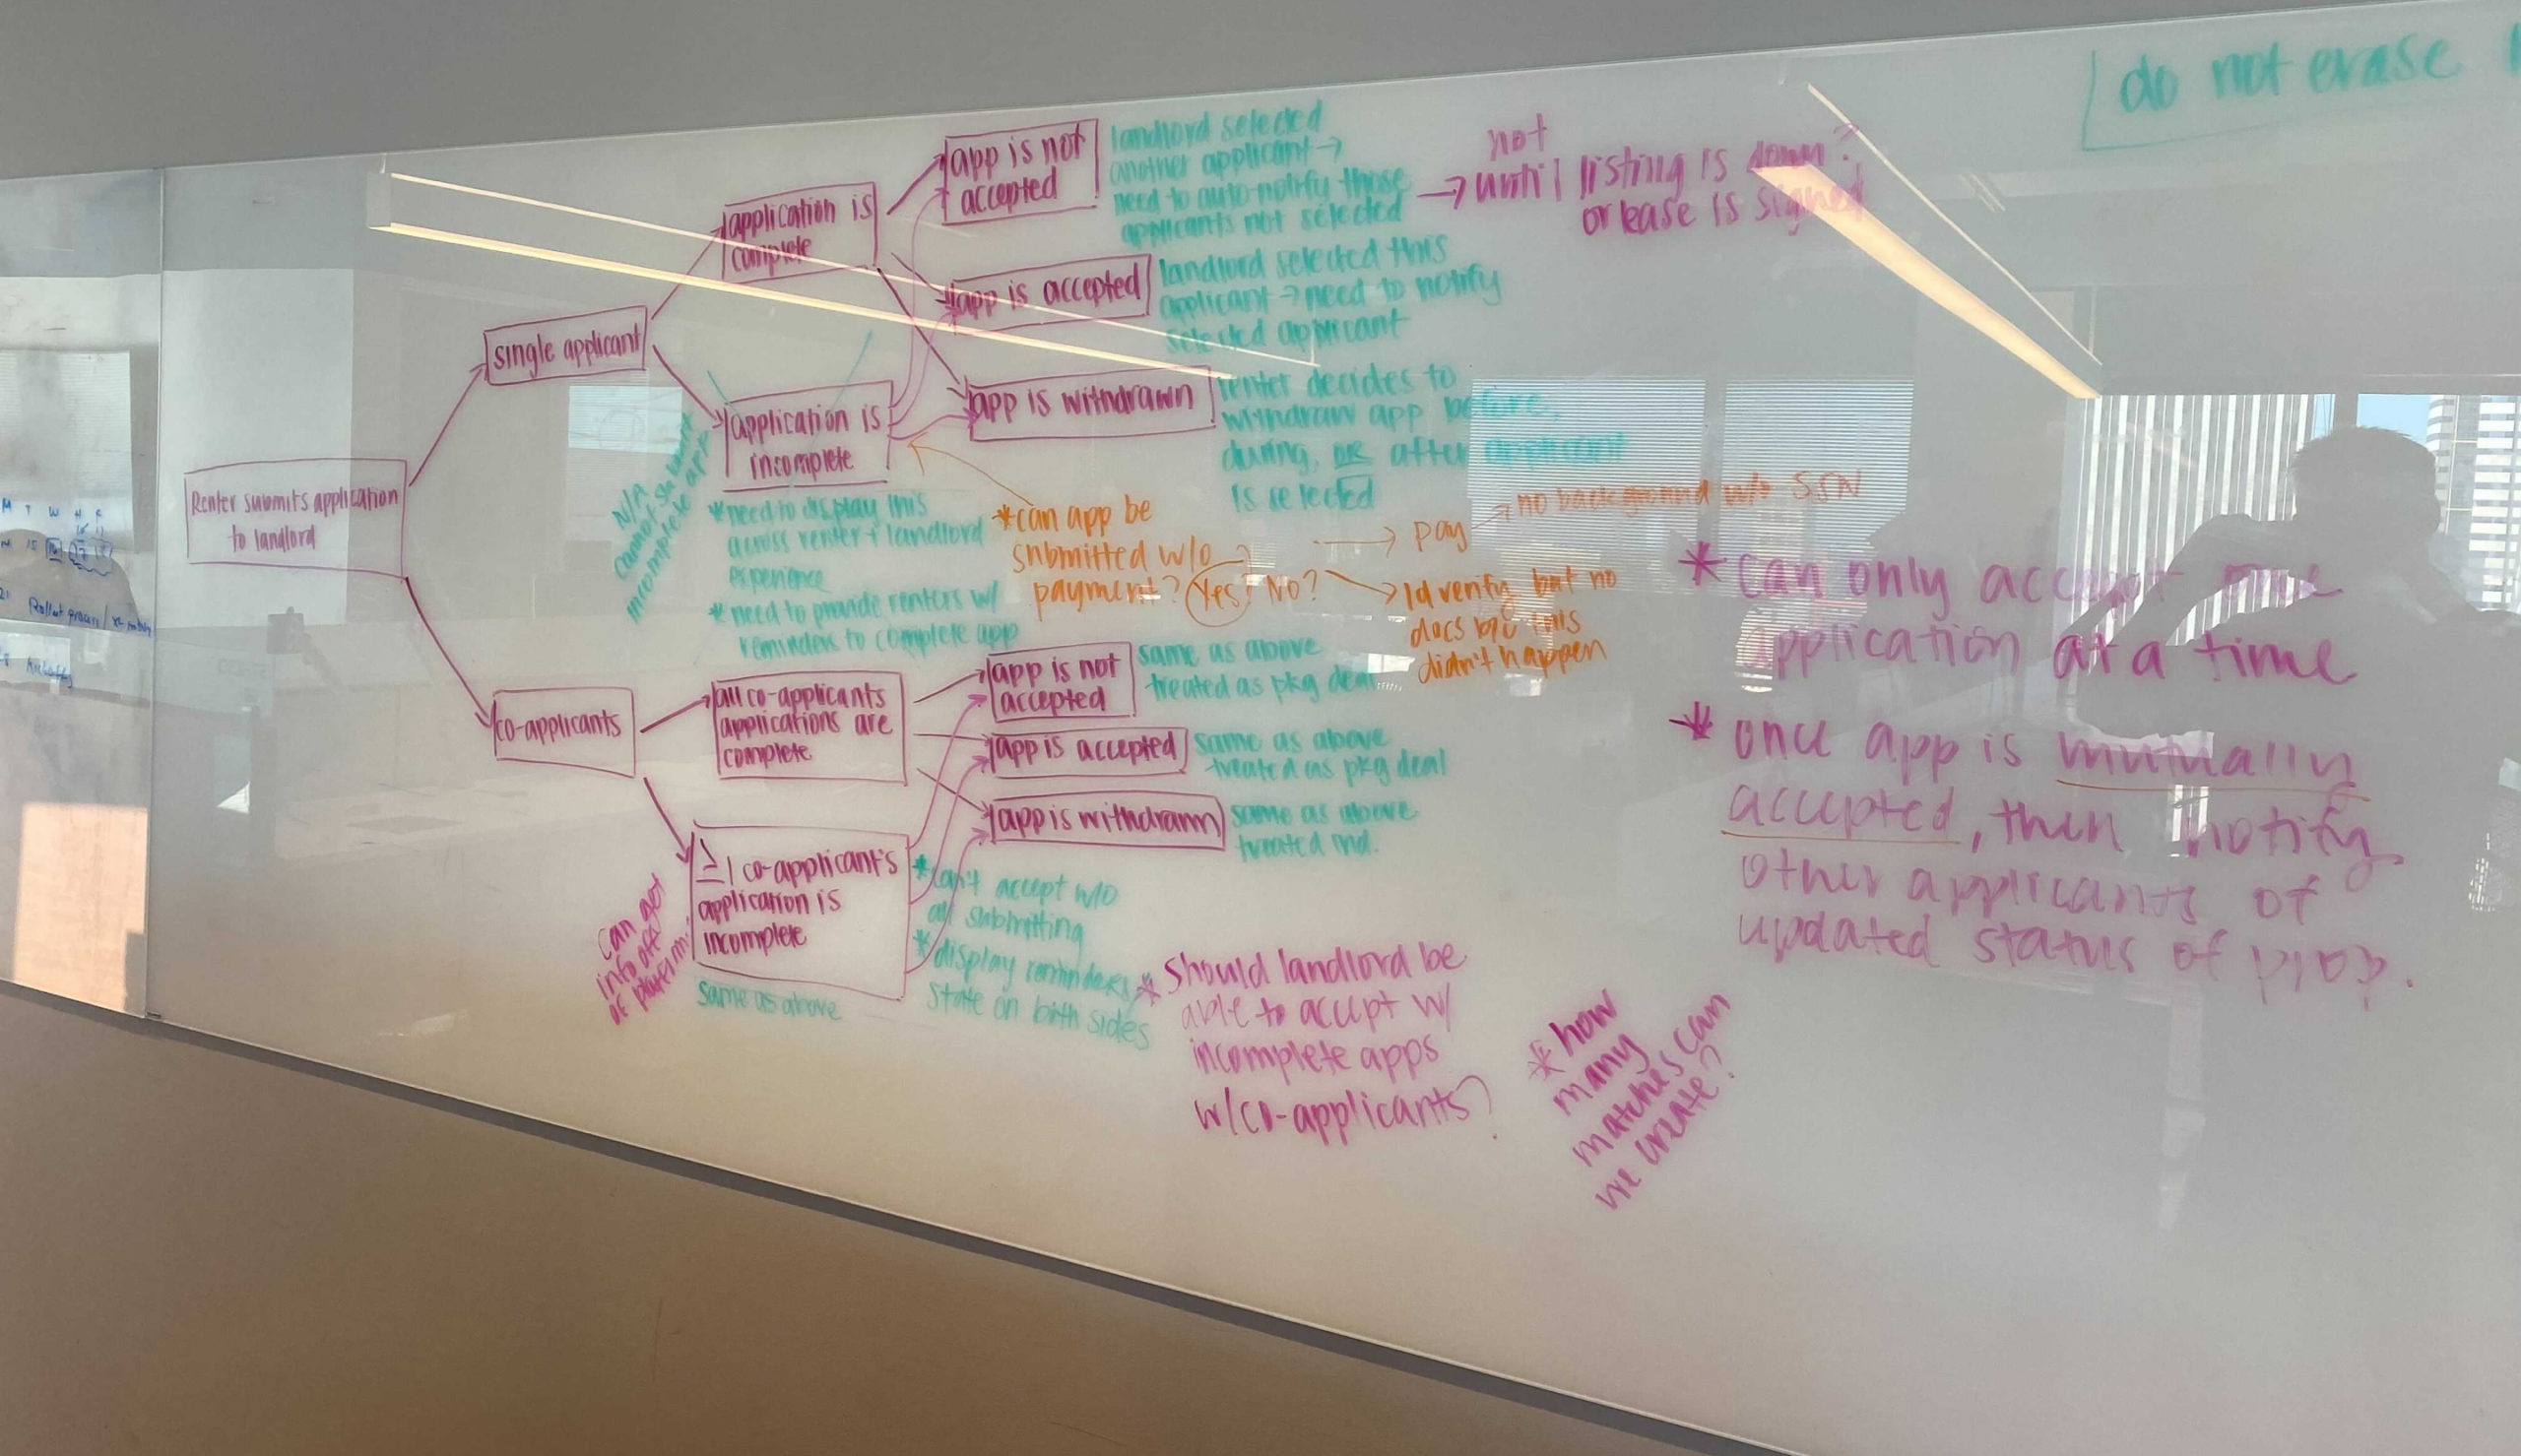 do not erase
Renter submits application
to landlord
single applicant
application is
complete
app is not
accepted
landlord selected
another applicant →
need to auto-notify those
applicants not selected
→ not
until listing is down?
or lease is signed
app is accepted
landlord selected this
applicant → need to notify
selected applicant
app is withdrawn
renter decides to
withdraw app before,
during, OR after applicant
is selected
application is
incomplete
N/A
cannot submit
incomplete apps
*need to display this
across renter + landlord
experience
*need to provide renters w/
reminders to complete app
*can app be
submitted w/o
payment? Yes? No?
→ pay → no background w/o SSN
→ Id verify but no
docs b/c this
didn't happen
co-applicants
all co-applicants
applications are
complete
app is not
accepted
same as above
treated as pkg deal
app is accepted
same as above
treated as pkg deal
app is withdrawn
same as above
treated ind.
≥1 co-applicant's
application is
incomplete
same as above
can get
info off
of platform.
*can't accept w/o
all submitting
*display reminders
state on both sides
*should landlord be
able to accept w/
incomplete apps
w/co-applicants?
*how
many
matches can
we create?
*can only accept one
application at a time
*once app is mutually
accepted, then notify
other applicants of
updated status of prop.
M T W H F